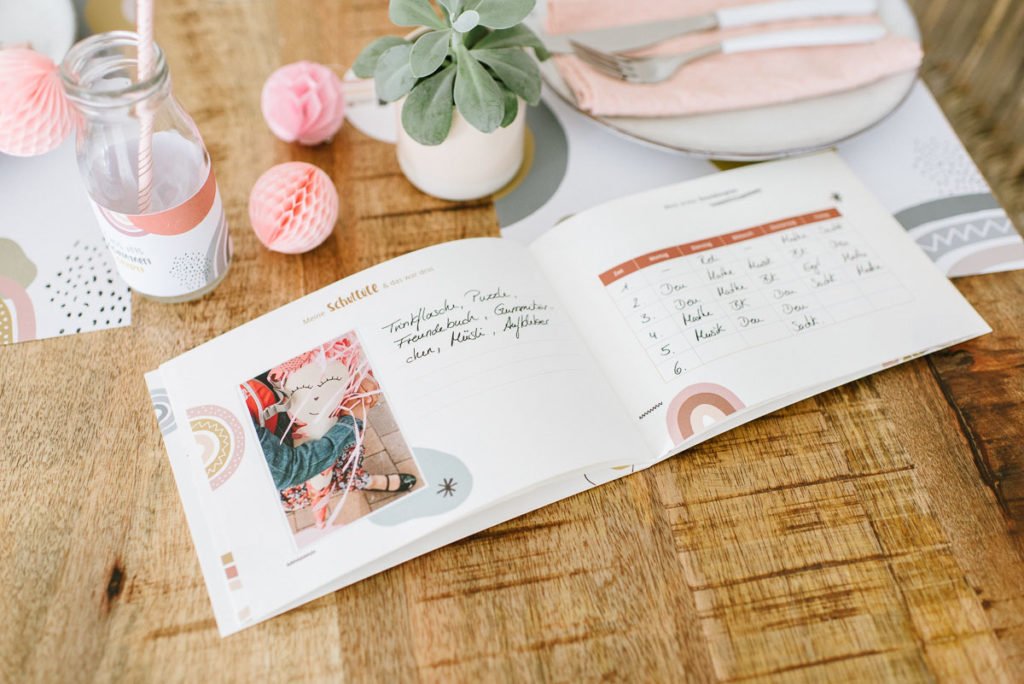 Meine Schultüte & das war drin
Trinkflasche, Puzzle,
Freundebuch, Gummibär-
chen, Müsli, Aufkleber
Zeit Montag Dienstag Mittwoch Donnerstag Freitag
1. – Rel. – Mathe
2. Deu Mathe Musik Bk Deu
3. Deu Mathe Bk Mathe
4. Mathe Bk Deu Mathe
5. Musik Deu Deu
6.